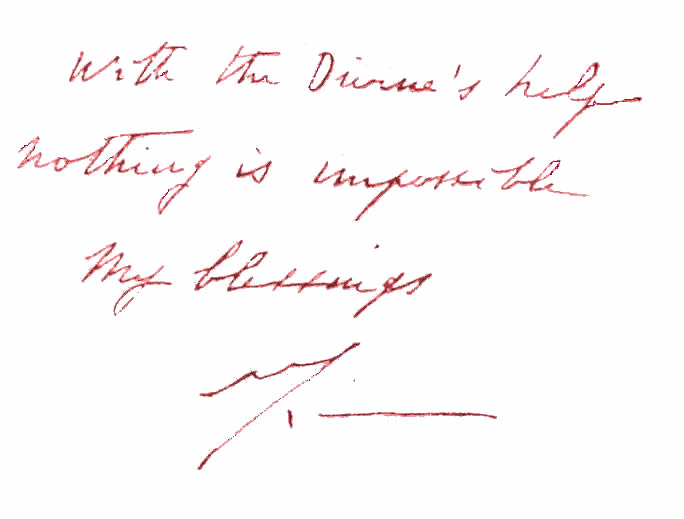 With the Divine's help
nothing is impossible
My blessings